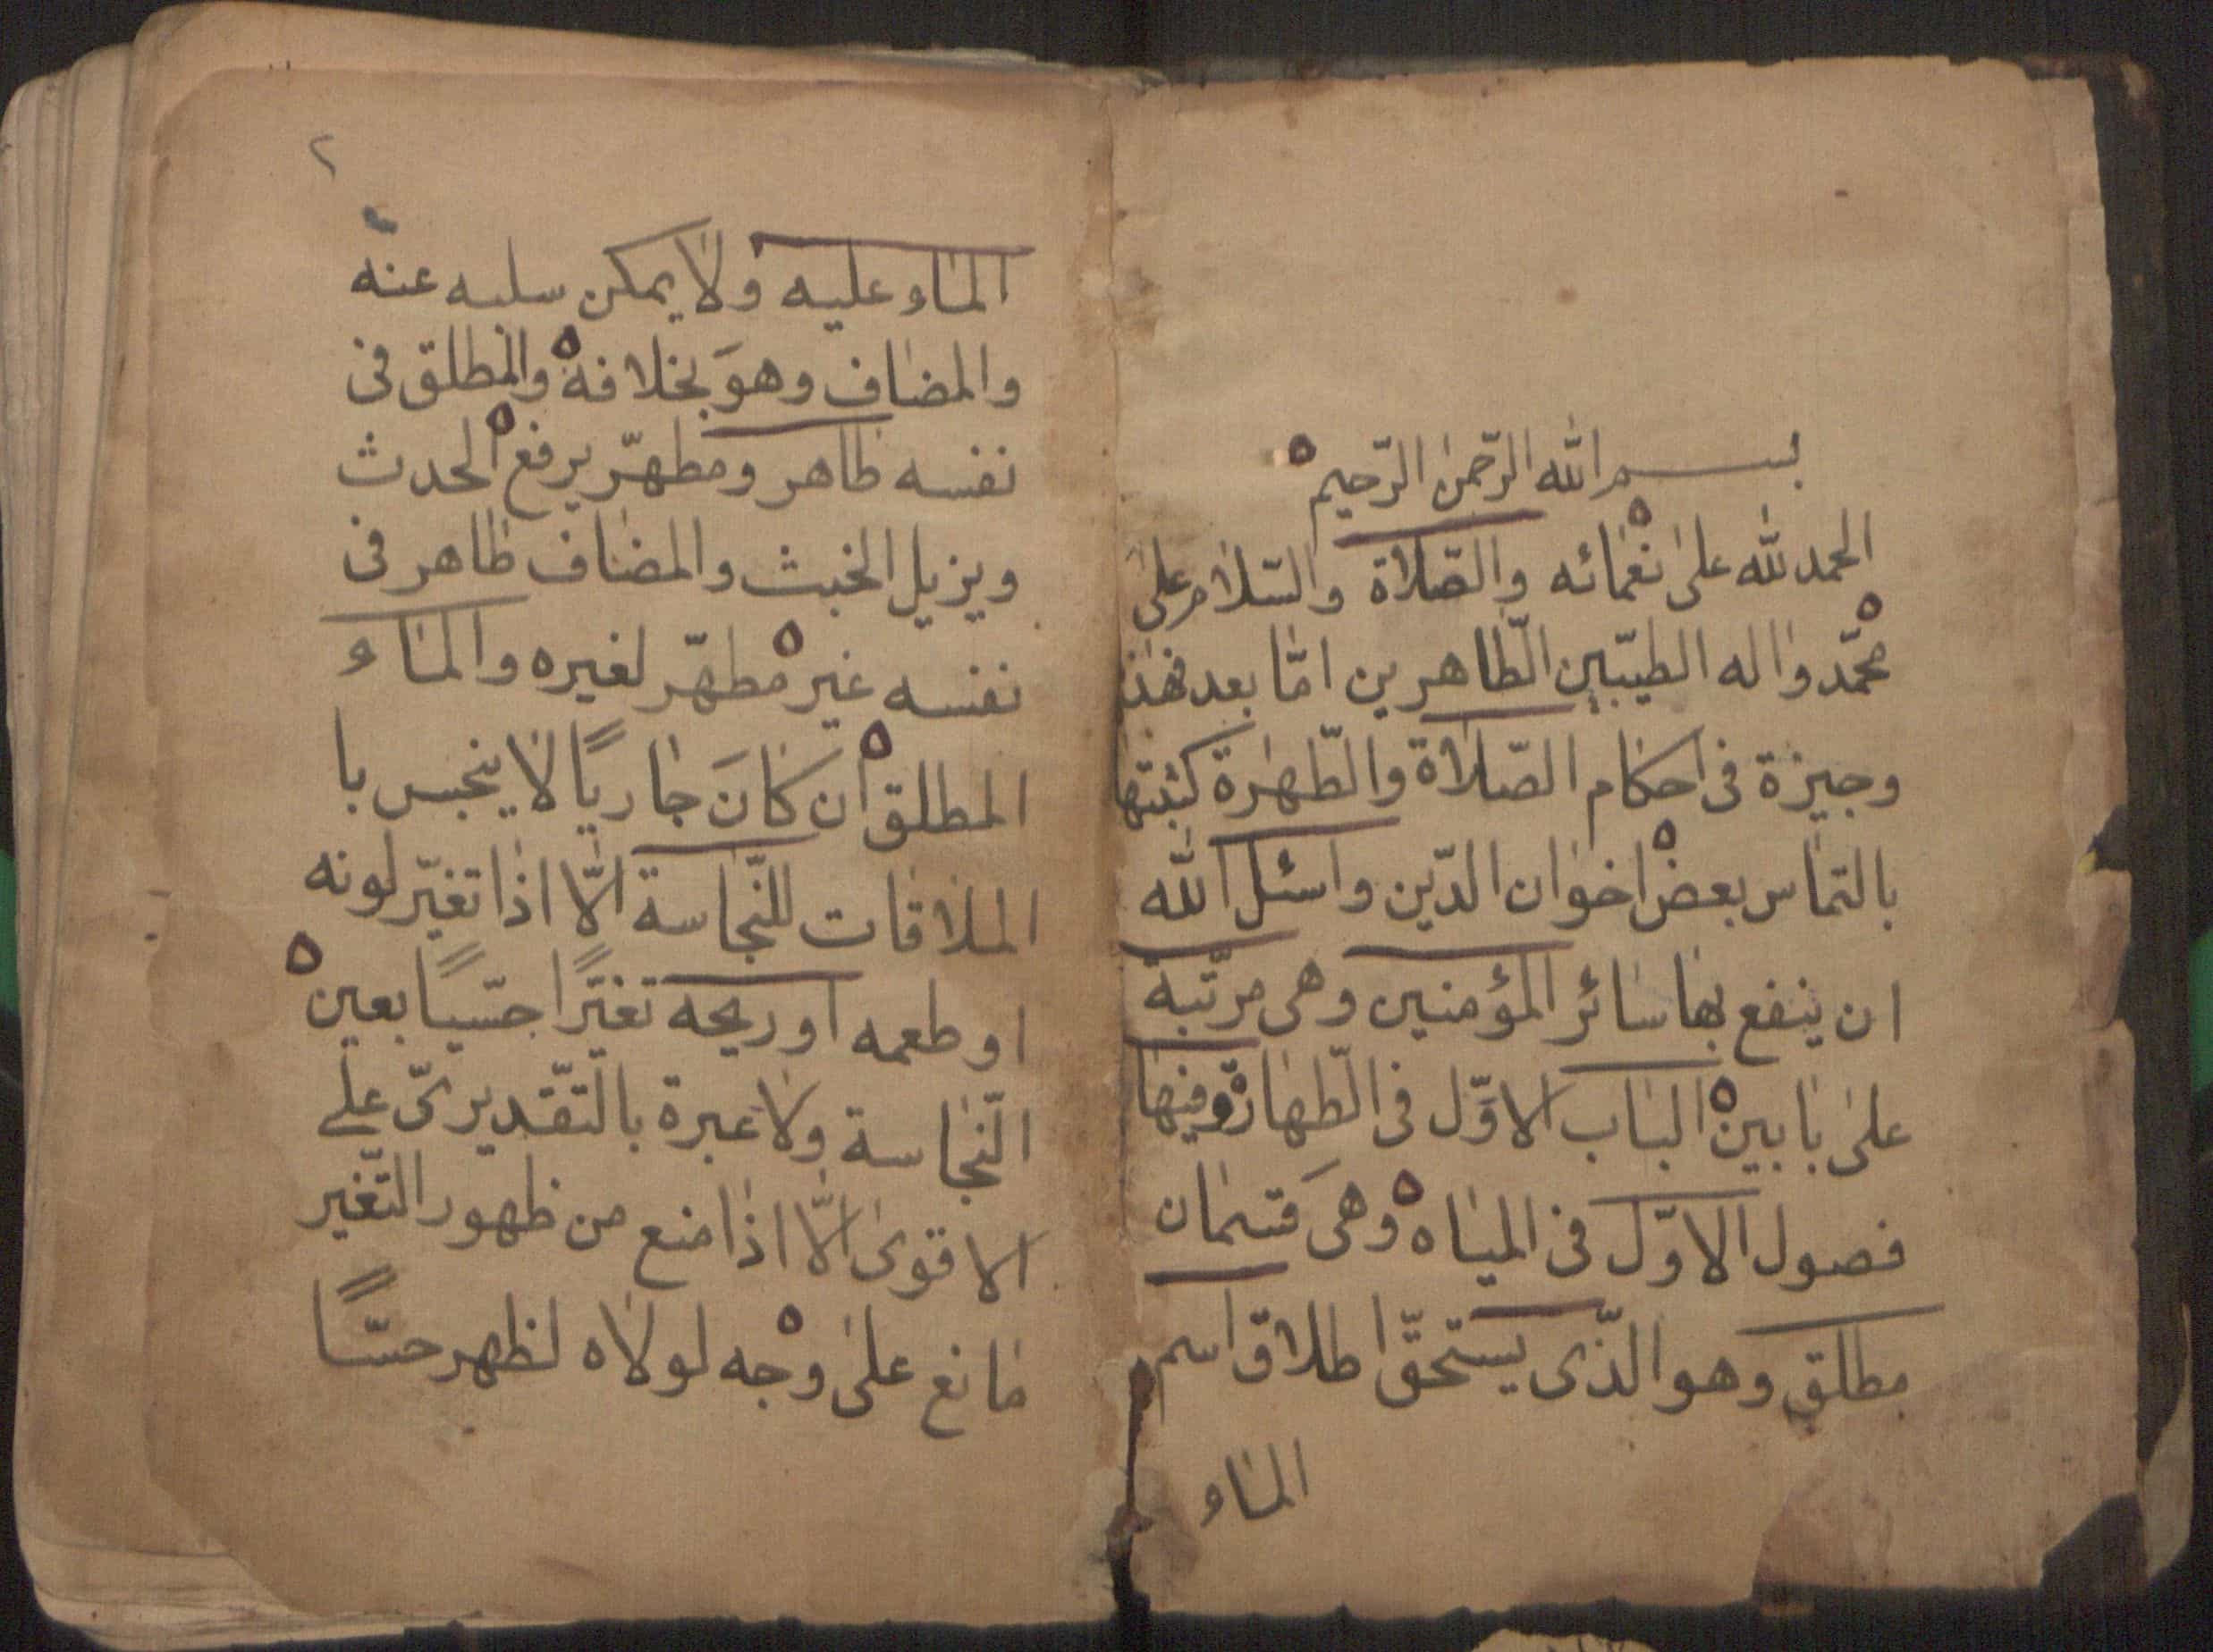 بسم الله الرّحمن الرّحيم
الحمد لله على نعمائه والصّلاة والسّلام على
محمّد واله الطيّبين الطّاهرين امّا بعد فهذه
وجيزة فى احكام الصّلاة والطّهارة كتبتها
بالتماس بعض اخوان الدّين واسئل الله
ان ينفع بها سائر المؤمنين وهى مرتّبة
على بابين الباب الاوّل فى الطّهارة وفيها
فصول الاوّل فى المياه وهى قسمان
مطلق وهو الّذى يستحقّ اطلاق اسم
الماء
٢
الماء عليه ولا يمكن سلبه عنه
والمضاف وهوَ بخلافه والمطلق فى
نفسه طاهر ومطهّر يرفع الحدث
ويزيل الخبث والمضاف طاهر فى
نفسه غير مطهّر لغيره والماء
المطلق ان كانَ جاريًا لا ينجس با
الملاقات للنّجاسة الّا اذا تغيّر لونه
او طعمه او ريحه تغيّرًا حسّيًا بعين
النّجاسة ولا عبرة بالتّقديرىّ على
الاقوى الّا اذا منع من ظهور التّغير
مانع على وجه لولاه لظهر حسًّا